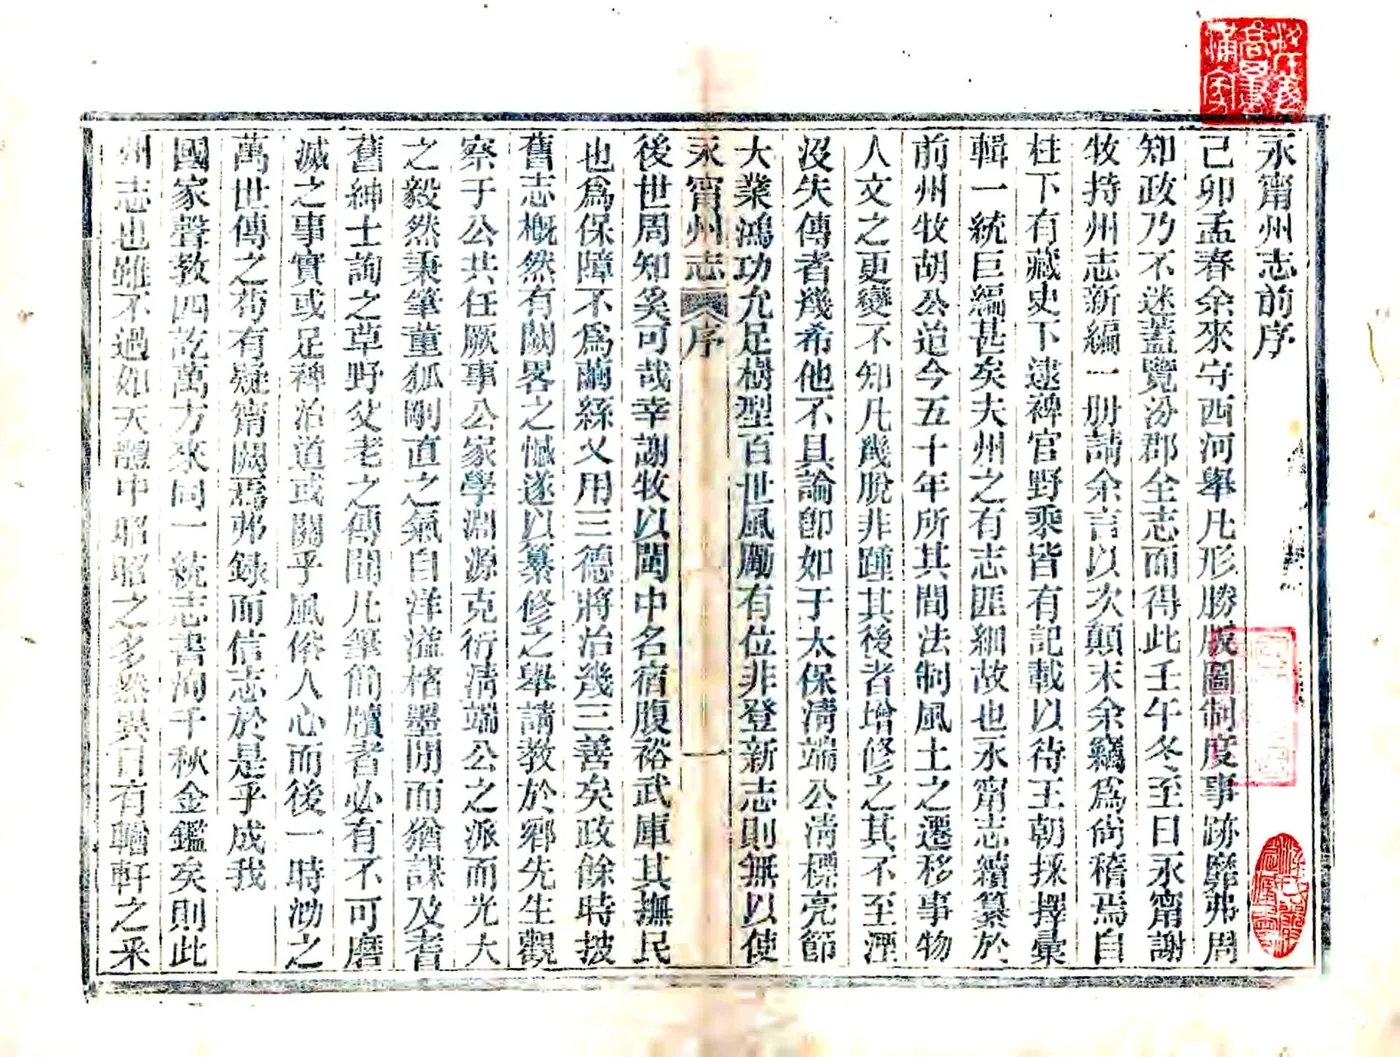 永甯州志前序
己卯孟春余來守西河舉凡形勝版圖制度事跡靡弗周
知政乃不迷蓋覽汾郡全志而得此壬午冬至日永甯謝
牧持州志新編一册請余言以次顛末余竊爲尙稽焉自
柱下有藏史下逮稗官野乘皆有記載以待王朝採擇彙
輯一統巨編甚矣夫州之有志匪細故也永甯志續纂於
前州牧胡公迨今五十年所其間法制風土之遷移事物
人文之更變不知凡幾脫非踵其後者增修之其不至湮
沒失傳者幾希他不具論卽如于太保淸端公淸標亮節
大業鴻功允足樹型百世風勵有位非登新志則無以使
永甯州志 序 一
後世周知奚可哉幸謝牧以閩中名宿腹裕武庫其撫民
也爲保障不爲繭絲乂用三德將治幾三善矣政餘時披
舊志槪然有闕畧之憾遂以纂修之舉請教於鄉先生觀
察于公共任厥事公家學淵源克衍淸端公之派而光大
之毅然秉筆董狐剛直之氣自洋溢楮墨閒而猶謀及耆
舊紳士詢之草野父老之傳聞凡筆簡牘者必有不可磨
滅之事實或足裨治道或關乎風俗人心而後一時泐之
萬世傳之苟有疑甯闕焉弗錄而信志於是乎成我
國家聲教四訖萬方來同一統志書洵千秋金鑑矣則此
州志也雖不過如天體中昭昭之多然異日有輶軒之釆